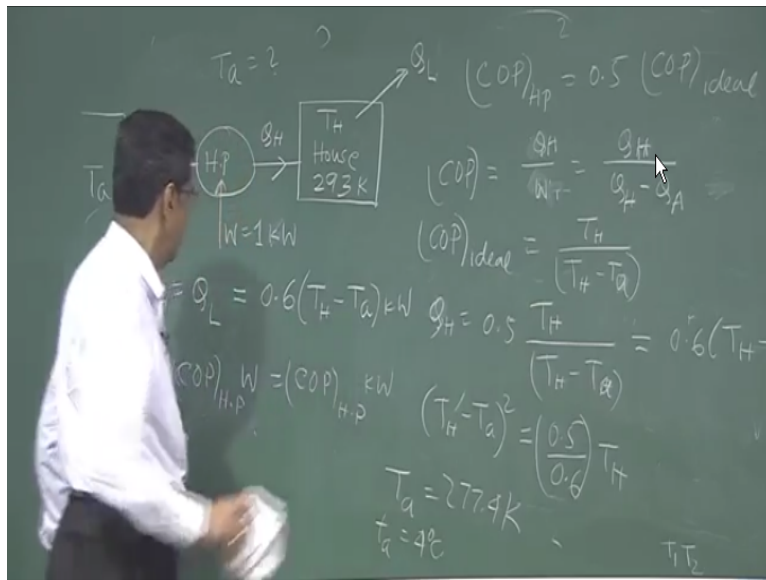 Ta = ?
QL
(COP)HP = 0.5 (COP)ideal
TH
House
293 K
QH
H.P
Ta
W = 1 KW
(COP) = QH / W = QH / (QH - QA)
(COP)ideal = TH / (TH - Ta)
= QL = 0.6 (TH - Ta) KW
QH = 0.5 TH / (TH - Ta) = 0.6 (TH -
(COP)H.P W = (COP)H.P KW
(TH - Ta)² = (0.5 / 0.6) TH
Ta = 277.4 K
ta = 4°C
T1 T2